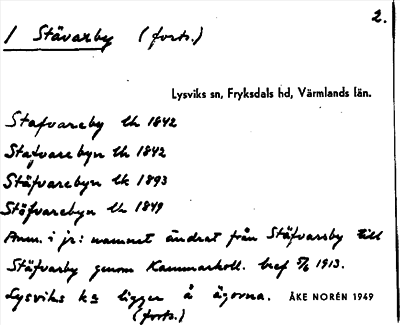 2.
1 Stävarby (forts.)
Lysviks sn, Fryksdals hd, Värmlands län.
Stafvareby Lk 1842
Stafvarebyn Lk 1842
Stäfvarebyn Lk 1893
Stöfvarebyn Lk 1849
Anm. i jr: namnet ändrat från Stäfvarsby till
Stäfvarby genom Kammarkoll. bref 5/6 1913.
Lysviks ka ligger å ägorna. ÅKE NORÉN 1949
(forts.)